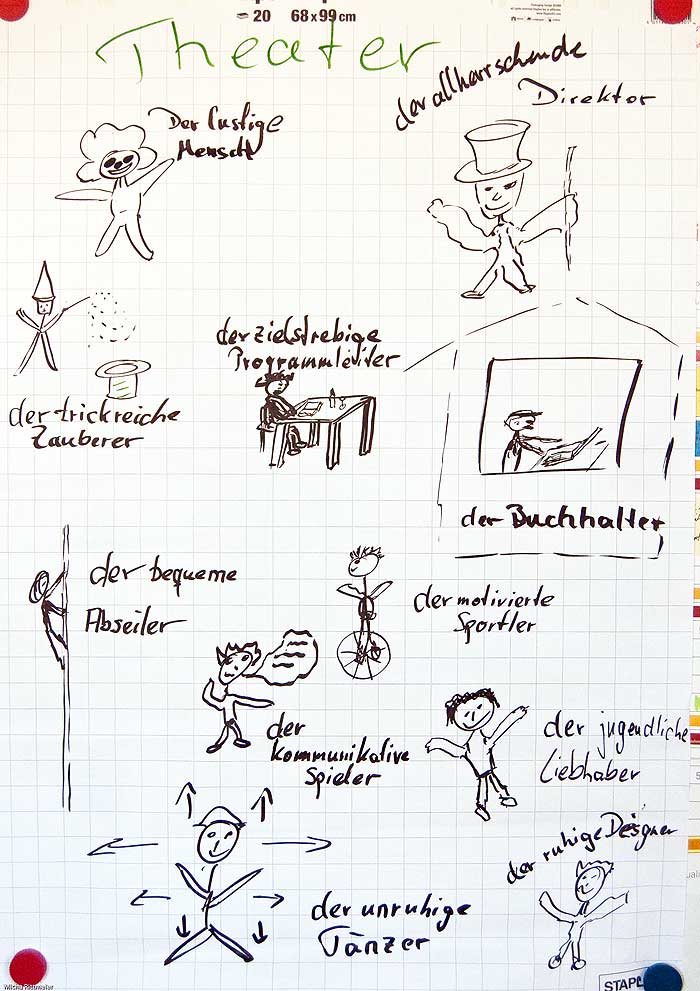 20 68 x 99 cm
Theater
der allherrschende
Direktor
Der lustige
Mensch
der zielstrebige
Programmleiter
der trickreiche
Zauberer
der Buchhalter
der bequeme
Abseiler
der motivierte
Sportler
der
kommunikative
Spieler
der jugendliche
Liebhaber
der ruhige Designer
der unruhige
Tänzer
STAPL